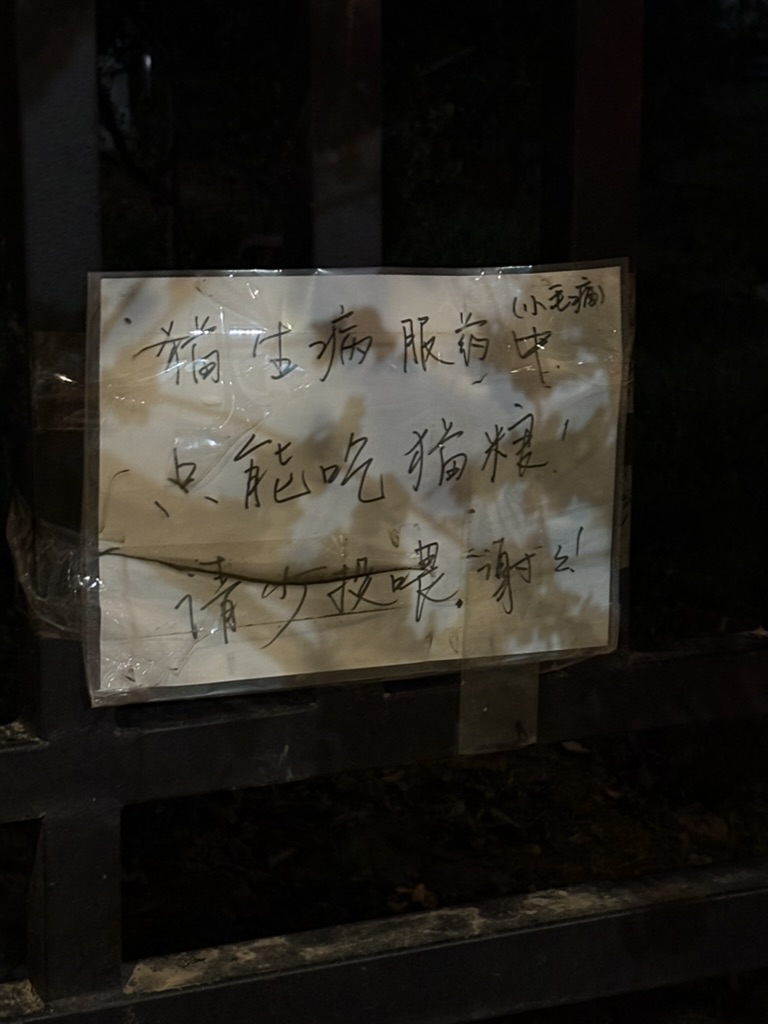 (小毛病)
猫生病服药中
只能吃猫粮!
请少投喂.谢云!